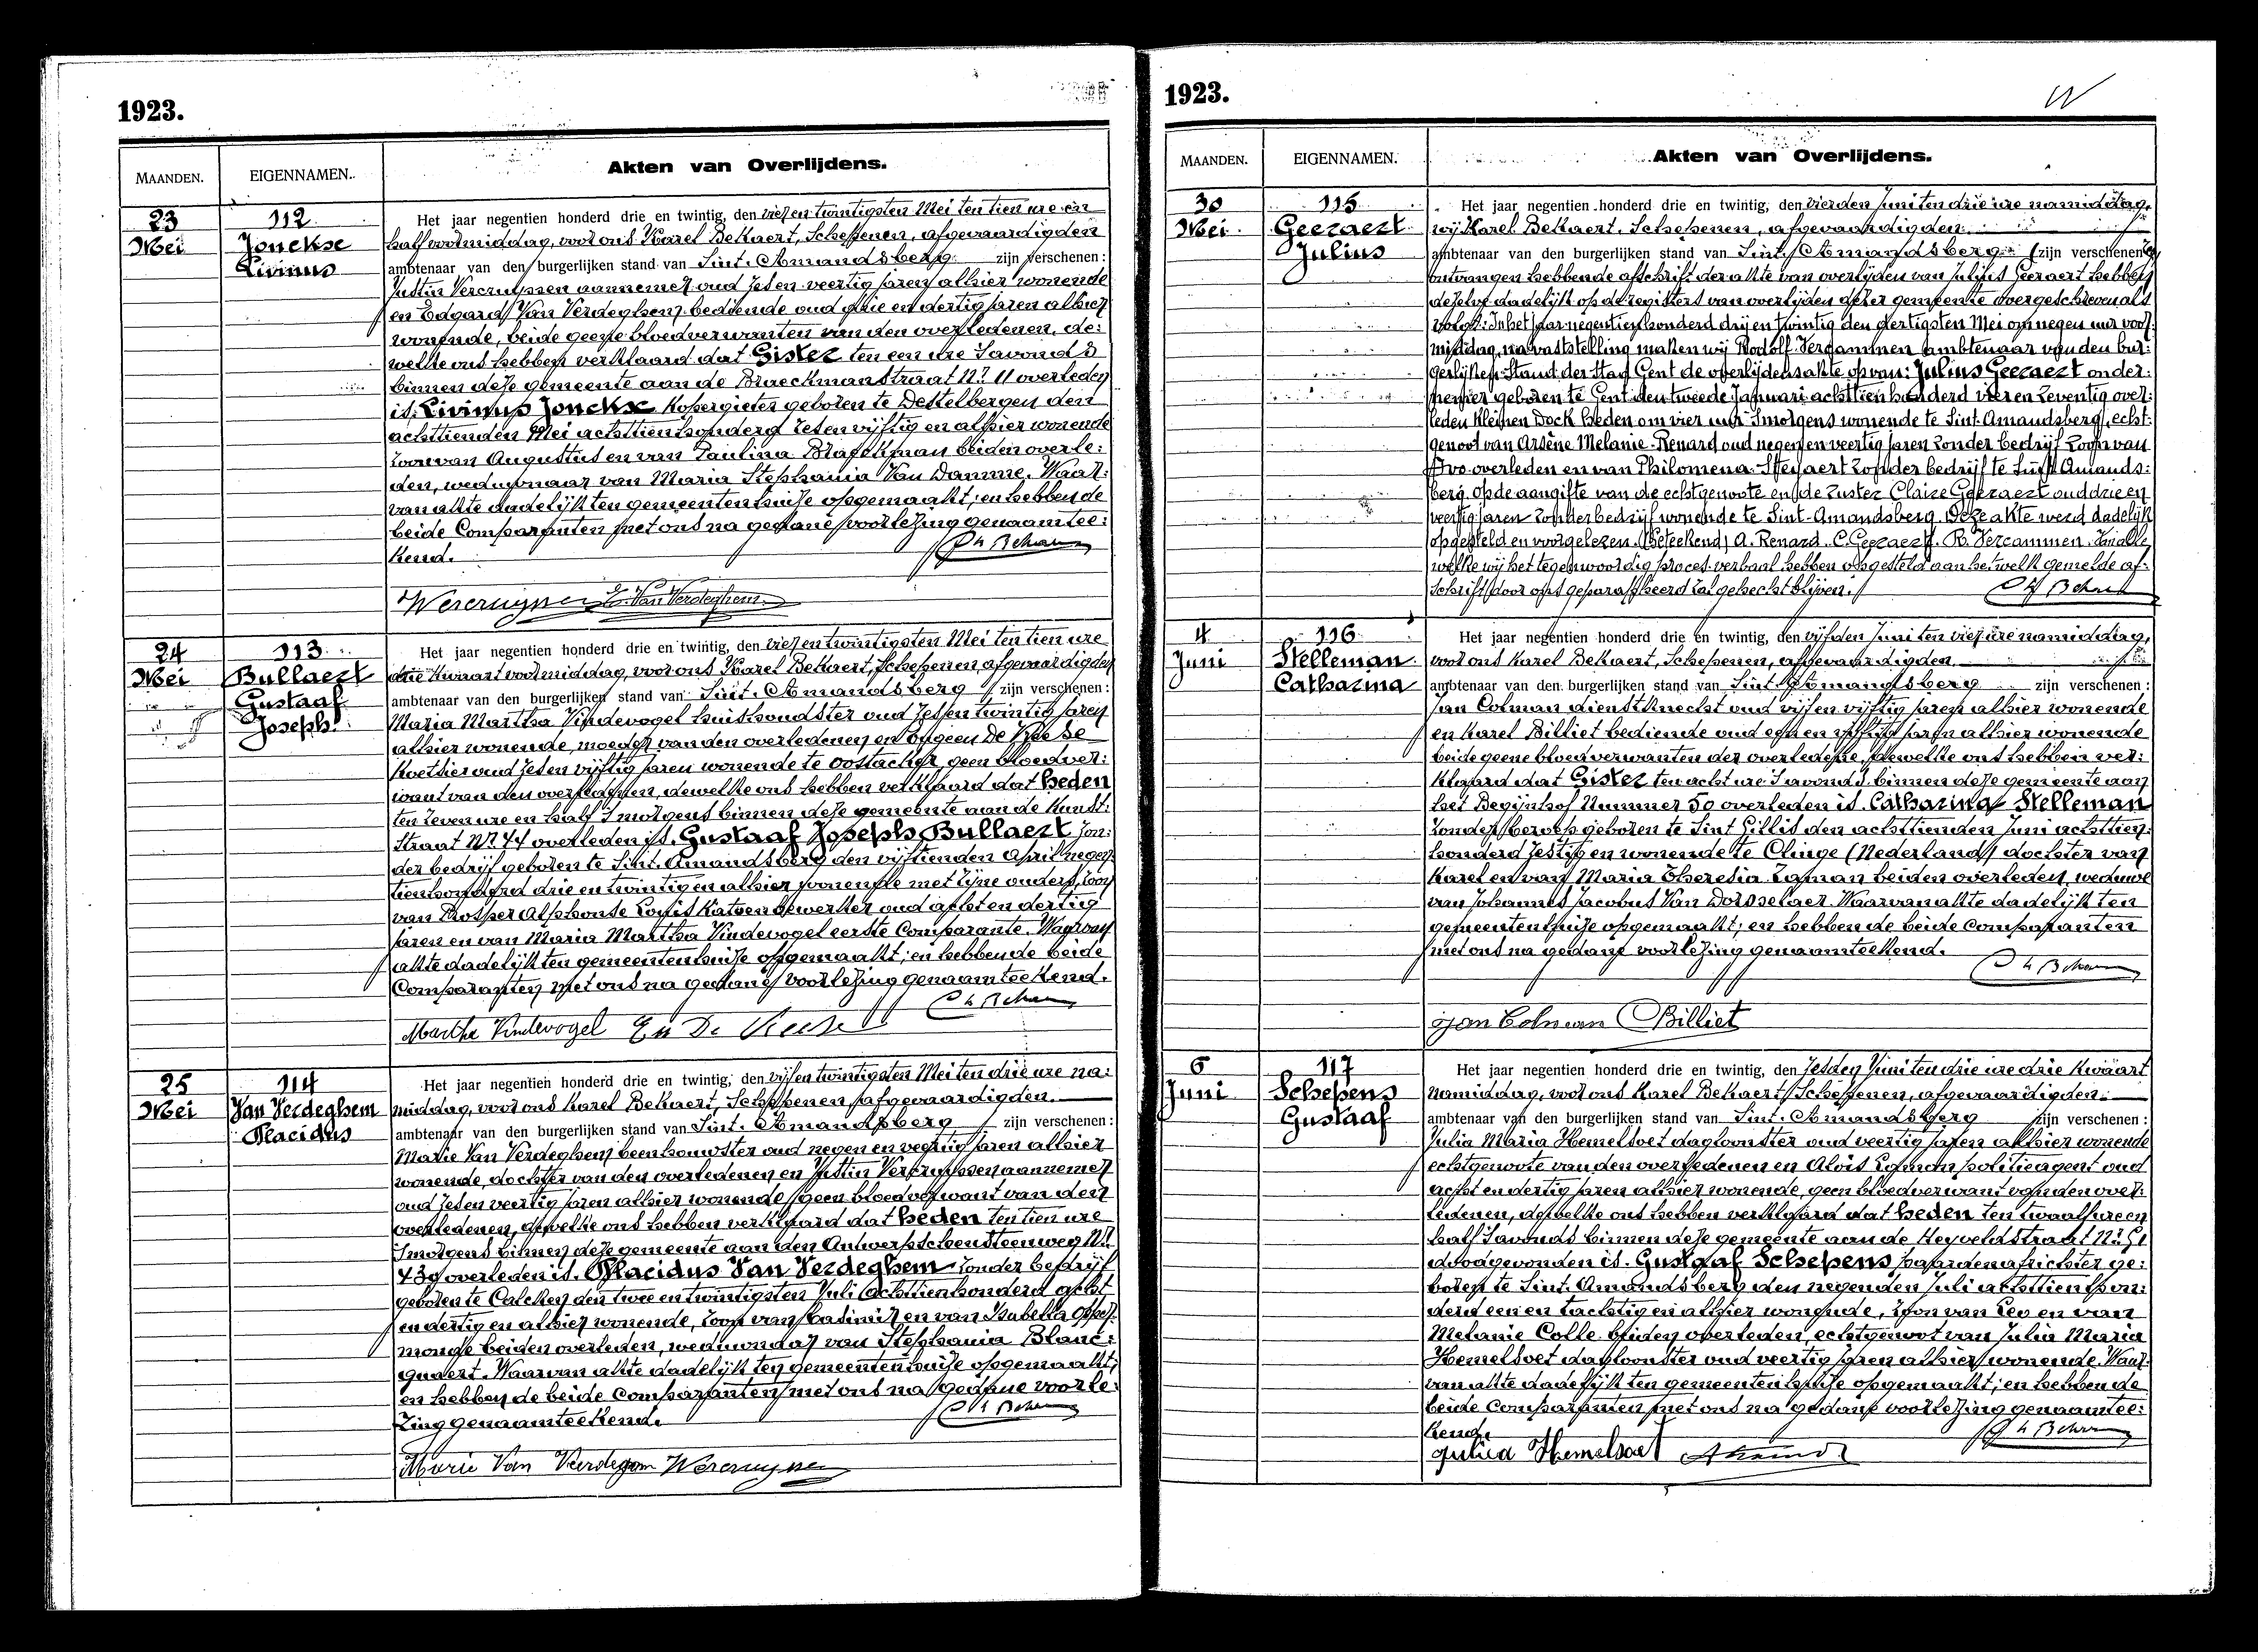 1923.
MAANDEN.
EIGENNAMEN.
Akten van Overlijdens.
23
Mei
112
Jonckxe
Livinus
Het jaar negentien honderd drie en twintig, den vier en twintigsten Mei ten tien ure en
half voormiddag, voor ons Karel Bekaert, Schepenen, afgevaardigden
ambtenaar van den burgerlijken stand van Sint. Amandsberg zijn verschenen:
Justin Vercruyssen aannemer oud zes en veertig jaren alhier wonende
en Edgard Van Verdeghem bediende oud drie en dertig jaren alhier
wonende, beide geene bloedverwanten van den overledenen, de:
welke ons hebben verklaard dat Gister ten een ure 's avonds
binnen deze gemeente aan de Braeckmanstraat Nr. 11 overleden
is: Livinus Jonckxe Kopergieter geboren te Destelbergen den
achttienden Mei achttienhonderd zes en vijftig en alhier wonende
zoon van Augustus en van Paulina Braeckman beiden overle:
den, weduwnaar van Maria Stephania Van Damme. Waar:
van akte dadelijk ten gemeentenhuize opgemaakt; en hebben de
beide Comparanten met ons na gedane voorlezing genaamtee:
kend.
Vercruyssen E. Van Verdeghem
24
Mei
113
Bullaert
Gustaaf
Joseph
Het jaar negentien honderd drie en twintig, den vier en twintigsten Mei ten tien ure
drie kwaart voormiddag, voor ons Karel Bekaert, Schepenen, afgevaardigden
ambtenaar van den burgerlijken stand van Sint. Amandsberg zijn verschenen:
Maria Martha Vindevogel huishoudster oud zes en twintig jaren
alhier wonende, moeder van den overledenen en Eugeen De Keese
Koetsier oud zes en vijftig jaren wonende te Oostacker, geen bloedver:
want van den overledenen, dewelke ons hebben verklaard dat heden
ten zeven ure en half 's morgens binnen deze gemeente aan de Kunst:
straat Nr. 44 overleden is. Gustaaf Joseph Bullaert zon:
der bedrijf geboren te Sint. Amandsberg den vijftienden April negen:
tienhonderd drie en twintig en alhier wonende met zijne ouders, zoon
van Prosper Alphonse Louis Katoenbewerker oud acht en dertig
jaren en van Maria Martha Vindevogel eerste Comparante. Waarvan
akte dadelijk ten gemeentenhuize opgemaakt; en hebben de beide
Comparanten met ons na gedane voorlezing genaamteekend.
Martha Vindevogel
25
Mei
114
Van Verdeghem
Placidus
Het jaar negentien honderd drie en twintig, den vijf en twintigsten Mei ten drie ure na:
middag, voor ons Karel Bekaert, Schepenen, afgevaardigden.
ambtenaar van den burgerlijken stand van Sint. Amandsberg zijn verschenen:
Marie Van Verdeghem beenhouwster oud negen en veertig jaren alhier
wonende, dochter van den overledenen en Justin Vercruyssen aannemer
oud zes en veertig jaren alhier wonende geen bloedverwant van den
overledenen, dewelke ons hebben verklaard dat heden ten tien ure
's morgens binnen deze gemeente aan den Antwerpschensteenweg Nr.
439 overleden is. Placidus Van Verdeghem zonder bedrijf
geboren te Calcken den twee en twintigsten Juli achttienhonderd acht
en dertig en alhier wonende, zoon van Casimir en van Isabella Opper:
monde beiden overleden, weduwnaar van Stephania Blanc:
quaert. Waarvan akte dadelijk ten gemeentenhuize opgemaakt;
en hebben de beide Comparanten met ons na gedane voorle:
zing genaamteekend.
Marie Van Verdegem Vercruyssen
1923.
MAANDEN.
EIGENNAMEN.
Akten van Overlijdens.
30
Mei
115
Geeraert
Julius
Het jaar negentien honderd drie en twintig, den vierden Juni ten drie ure namiddag,
wij Karel Bekaert, Schepenen, afgevaardigden
ambtenaar van den burgerlijken stand van Sint. Amandsberg zijn verschenen
ontvangen hebbende afschrift der akte van overlijden van Julius Geeraert hebben
dezelve dadelijk op de registers van overlijden dezer gemeente overgeschreven als
volgt: In het jaar negentienhonderd drij en twintig den dertigsten Mei om negen uur voor:
middag, na vaststelling maken wij Rodolf Vercammen ambtenaar van den bur:
gerlijken Stand der stad Gent de overlijdensakte op van: Julius Geeraert onder:
pensier geboren te Gent den tweede Januari achttien honderd vier en zeventig over:
leden Kleinen Dock heden om vier uur 's morgens wonende te Sint-Amandsberg, echt:
genoot van Arsène Melanie Renard oud negen en veertig jaren zonder bedrijf zoon van
Ivo overleden en van Philomena Steyaert zonder bedrijf te Sint Amands:
berg. Op de aangifte van de echtgenoote en de zuster Claire Geeraert oud drie en
veertig jaren zonder bedrijf wonende te Sint-Amandsberg. Deze akte werd dadelijk
opgesteld en voorgelezen. (Geteekend) A. Renard. C. Geeraert. R. Vercammen. Van alle
welke wij het tegenwoordig proces-verbaal hebben opgesteld aan hetwelk gemelde af:
schrift door ons geparapheerd zal gehecht blijven.
4
Juni
116
Stelleman
Catharina
Het jaar negentien honderd drie en twintig, den vijfden Juni ten vier ure namiddag,
voor ons Karel Bekaert, Schepenen, afgevaardigden
ambtenaar van den burgerlijken stand van Sint. Amandsberg zijn verschenen:
Jan Colman dienstknecht oud vijf en vijftig jaren alhier wonende
en Karel Billiet bediende oud een en vijftig jaren alhier wonende
beide geene bloedverwanten der overledene, dewelke ons hebben ver:
klaard dat Gister ten acht ure 's avonds binnen deze gemeente aan
het Begijnhof Nummer 50 overleden is. Catharina Stelleman
zonder beroep geboren te Sint Gillis den achttienden Juni achttien:
honderd zestig en wonende te Clinge (Nederland) dochter van
Karel en van Maria Theresia Zegman beiden overleden, weduwe
van Johannes Jacobus Van Dorsselaer. Waarvan akte dadelijk ten
gemeentenhuize opgemaakt; en hebben de beide Comparanten
met ons na gedane voorlezing genaamteekend.
Jan Colman Billiet
6
Juni
117
Schepens
Gustaaf
Het jaar negentien honderd drie en twintig, den zesden Juni ten drie ure drie kwaart
namiddag, voor ons Karel Bekaert, Schepenen, afgevaardigden.
ambtenaar van den burgerlijken stand van Sint. Amandsberg zijn verschenen:
Julia Maria Hemelsoet dagloonster oud veertig jaren alhier wonende
echtgenoote van den overledenen en Alois politieagent oud
acht en dertig jaren alhier wonende, geen bloedverwant van den over:
ledenen, dewelke ons hebben verklaard dat heden ten twaalf ure en
half 's avonds binnen deze gemeente aan de Heyveldstraat Nr. 51
doodgevonden is. Gustaaf Schepens paardenafrichter ge:
boren te Sint. Amandsberg den negenden Juli achttienhon:
derd een en tachtig en alhier wonende, zoon van Leo en van
Melanie Colle beiden overleden, echtgenoot van Julia Maria
Hemelsoet dagloonster oud veertig jaren alhier wonende. Waar:
van akte dadelijk ten gemeentenhuize opgemaakt; en hebben de
beide Comparanten met ons na gedane voorlezing genaamtee:
kend.
Julia Hemelsoet